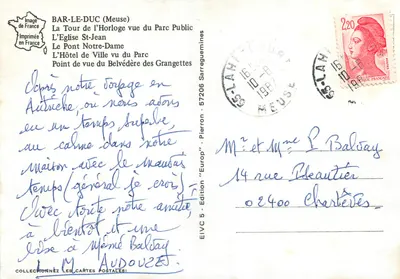 Image de France
Imprimée en France
BAR-LE-DUC (Meuse)
La Tour de l'Horloge vue du Parc Public
L'Eglise St-Jean
Le Pont Notre-Dame
L'Hôtel de Ville vu du Parc
Point de vue du Belvédère des Grangettes
Après notre voyage en
Autriche, ou nous avons
eu un temps superbe,
au calme dans notre
maison avec le mauvais
temps (général je crois)
Avec toute notre amitié,
à bientôt et une
bise à Mémé Balvay
M. AUDOUZE
COLLECTIONNEZ LES CARTES POSTALES
EIVC 5 - Edition "Europ" - Pierron - 57206 Sarreguemines
16 H
10-9
MEUSE
2,20
16 H
10-9
Mr et Mme P Balvay
14 rue Beautier
02400 Chartèves